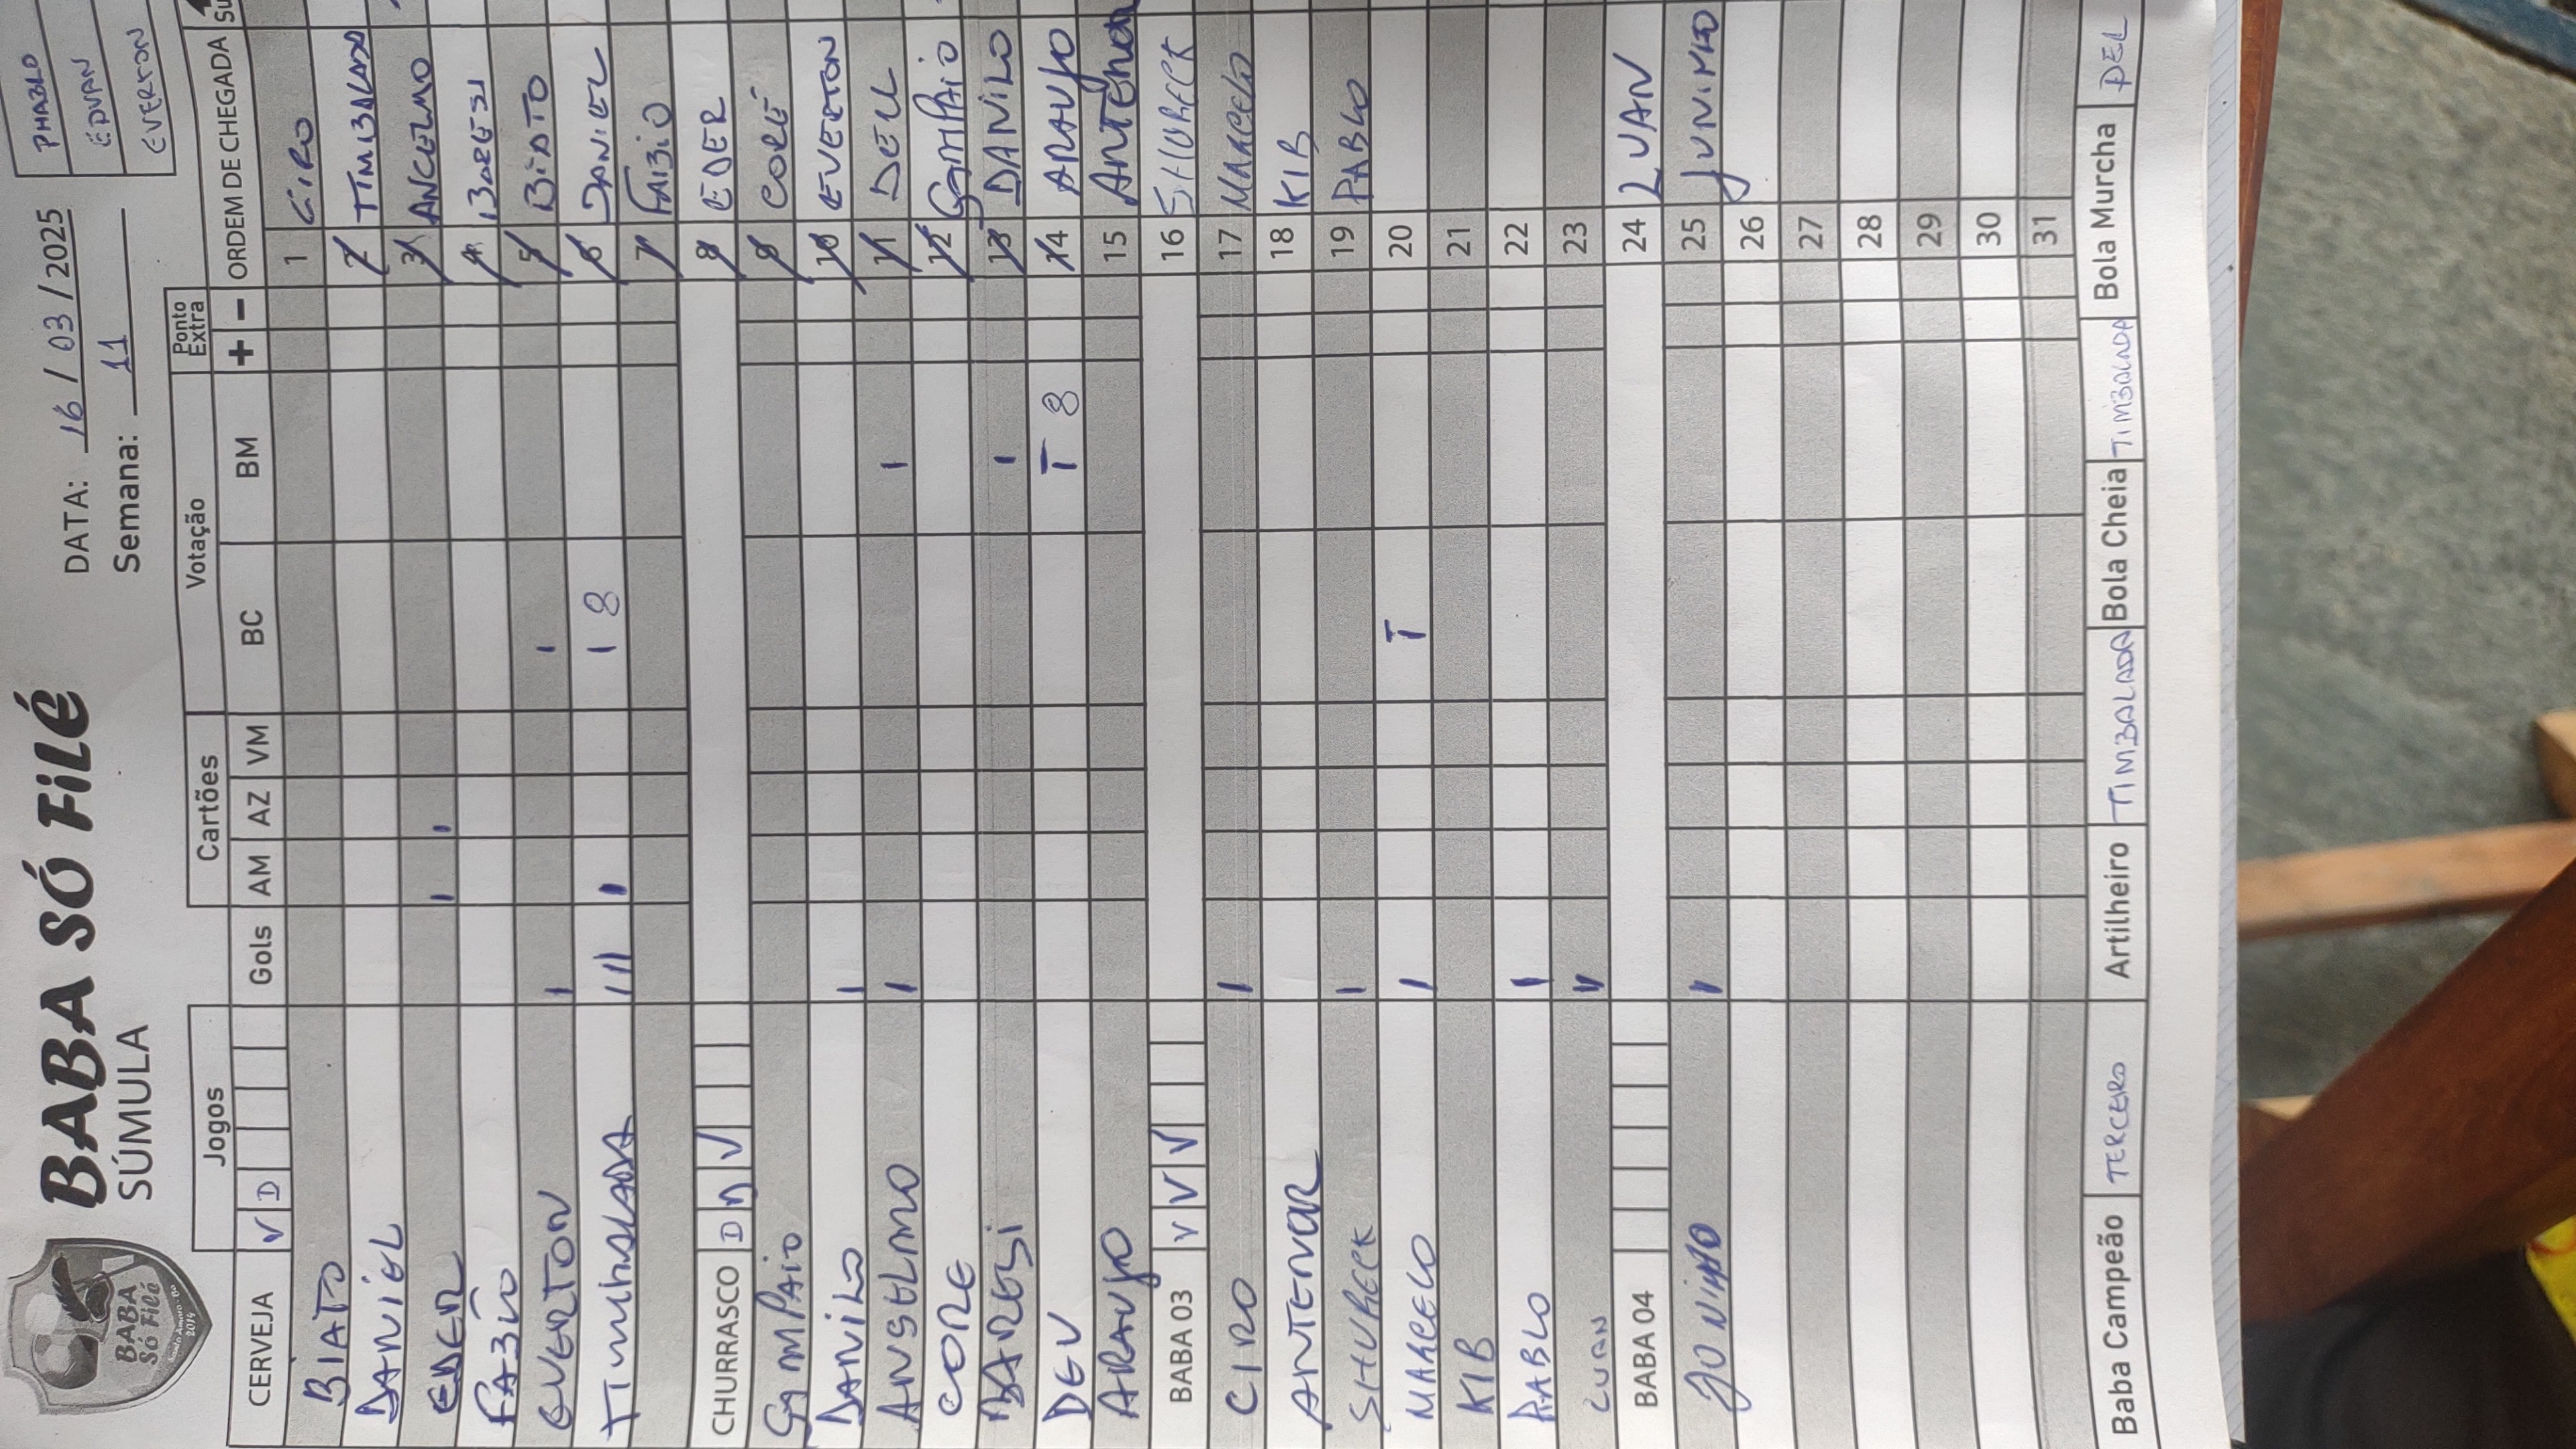 BABA SÓ FILÉ
SÚMULA
BABA
Só Filé
2014
DATA: 16 / 03 / 2025
Semana: 11
PHABLO
EDVAN
EVERTON
Jogos
Gols
Cartões
Votação
Ponto Extra
ORDEM DE CHEGADA
Su
CERVEJA V D
AM AZ VM BC BM + -
BIATO 1 CIRO
DANIEL 2 TIMBALADA
EDER I I 3 ANCELMO
FABIO 4 BARESI
EVERTON I I 5 BIATO
TIMBALADA III I I 8 6 DANIEL
7 FABIO
CHURRASCO D D V 8 EDER
SAMPAIO 9 CORÉ
DANILO I 10 EVERTON
ANSELMO I I 11 DELL
CORE 12 SAMPAIO
BARESI I 13 DANILO
DEU T 8 14 ARAUJO
ARAUJO 15 ANTENOR
BABA 03 V V V 16 SHURECK
CIRO I 17 MARCELO
ANTENOR 18 KIB
SHURECK I 19 PABLO
MARCELO I T 20
KIB 21
PABLO I 22
LUAN II 23
BABA 04 24 LUAN
JUNINHO I 25 JUNINHO
26
27
28
29
30
31
Baba Campeão TERCERO Artilheiro TIMBALADA Bola Cheia TIMBALADA Bola Murcha DEL